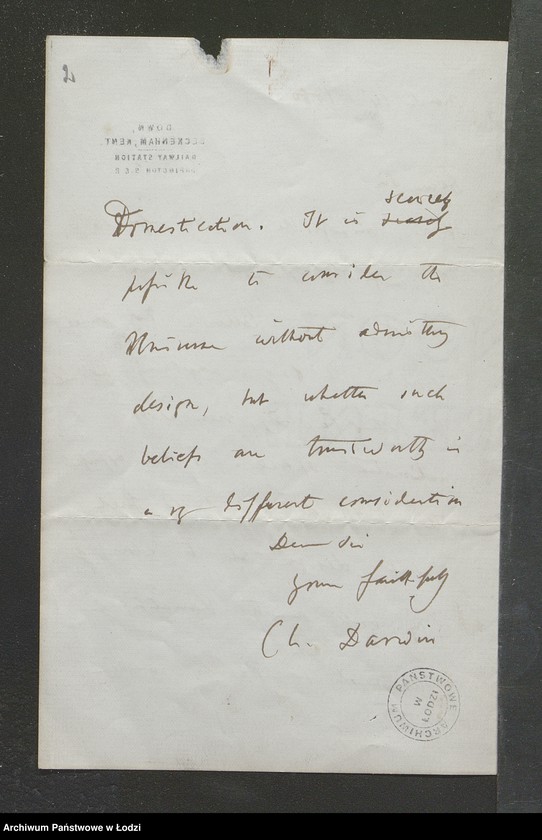 2
DOWN,
BECKENHAM, KENT.
RAILWAY STATION
ORPINGTON. S.E.R.
scarcely
Domestication. It is scarcely
possible to consider the
Universe without admitting
design, but whether such
beliefs are trustworthy is
a very different consideration
Dear Sir
yours faithfully
Ch. Darwin
ARCHIWUM PAŃSTWOWE
W
ŁODZI
Archiwum Państwowe w Łodzi